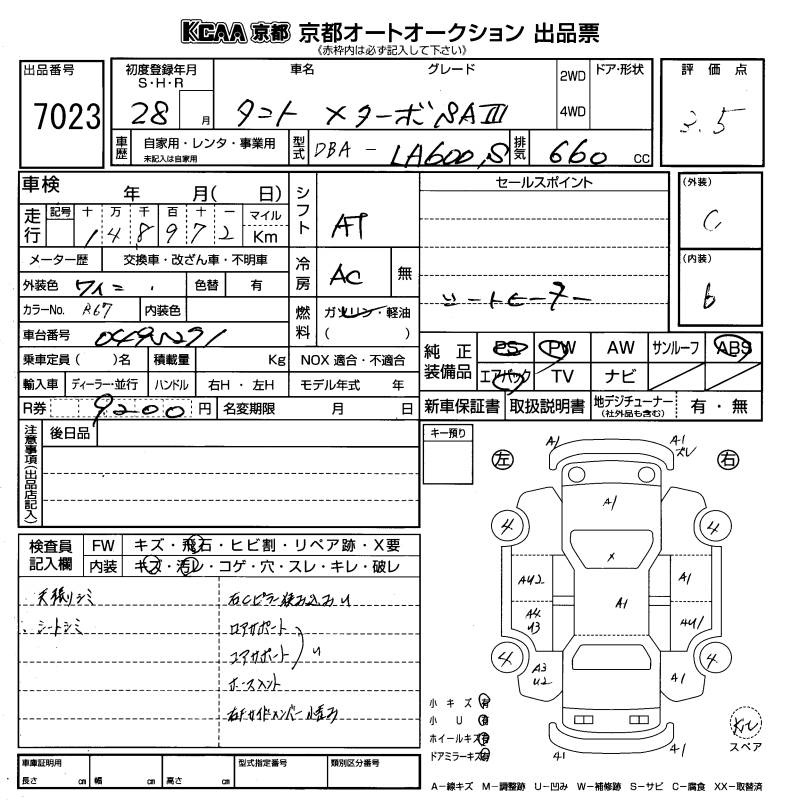 KCAA 京都 京都オートオークション 出品票
《赤枠内は必ず記入して下さい》
出品番号
7023
初度登録年月
S・H・R
28 月
車名
グレード
タント Xターボ SAⅢ
2WD
4WD
ドア・形状
評価点
3.5
車歴
自家用・レンタ・事業用
未記入は自家用
型式
DBA - LA600S
排気
660 cc
車検 年 月( 日)
走行
記号 十 万 千 百 十 一
1 4 8 9 7 2
マイル
Km
メーター歴 交換車・改ざん車・不明車
外装色 ワイン 色替 有
カラーNo. R67 内装色
車台番号
乗車定員 ( )名 積載量 Kg
輸入車 ディーラー・並行 ハンドル 右H・左H
R券 9200 円 名変期限 月 日
シフト
AT
冷房
AC 無
燃料
ガソリン・軽油
( )
NOX 適合・不適合
モデル年式 年
セールスポイント
シートヒーター
(外装)
C
(内装)
b
純正装備品
PS PW AW サンルーフ ABS
エアバック TV ナビ
新車保証書 取扱説明書 地デジチューナー
(社外品も含む)
有・無
注意事項(出品店記入)
後日品
キー預り
検査員記入欄
FW キズ・飛石・ヒビ割・リペア跡・X要
内装 キズ・汚レ・コゲ・穴・スレ・キレ・破レ
天張りシミ
シートシミ
右Cピラー
ロアサポート
コアサポート
U
右Fサイドメンバー
左
右
A1
A1
ズレ
A1
4
4
X
AU2
A1
A1
A4
U3
4U1
4
4
A3
U2
A1
A1
A1
小キズ 有
小U 有
ホイールキズ 有
ドアミラーキズ 有
スペア
車庫証明用
長さ cm 幅 cm 高さ cm
型式指定番号
類別区分番号
A－線キズ M－調整跡 U－凹み W－補修跡 S－サビ C－腐食 XX－取替済